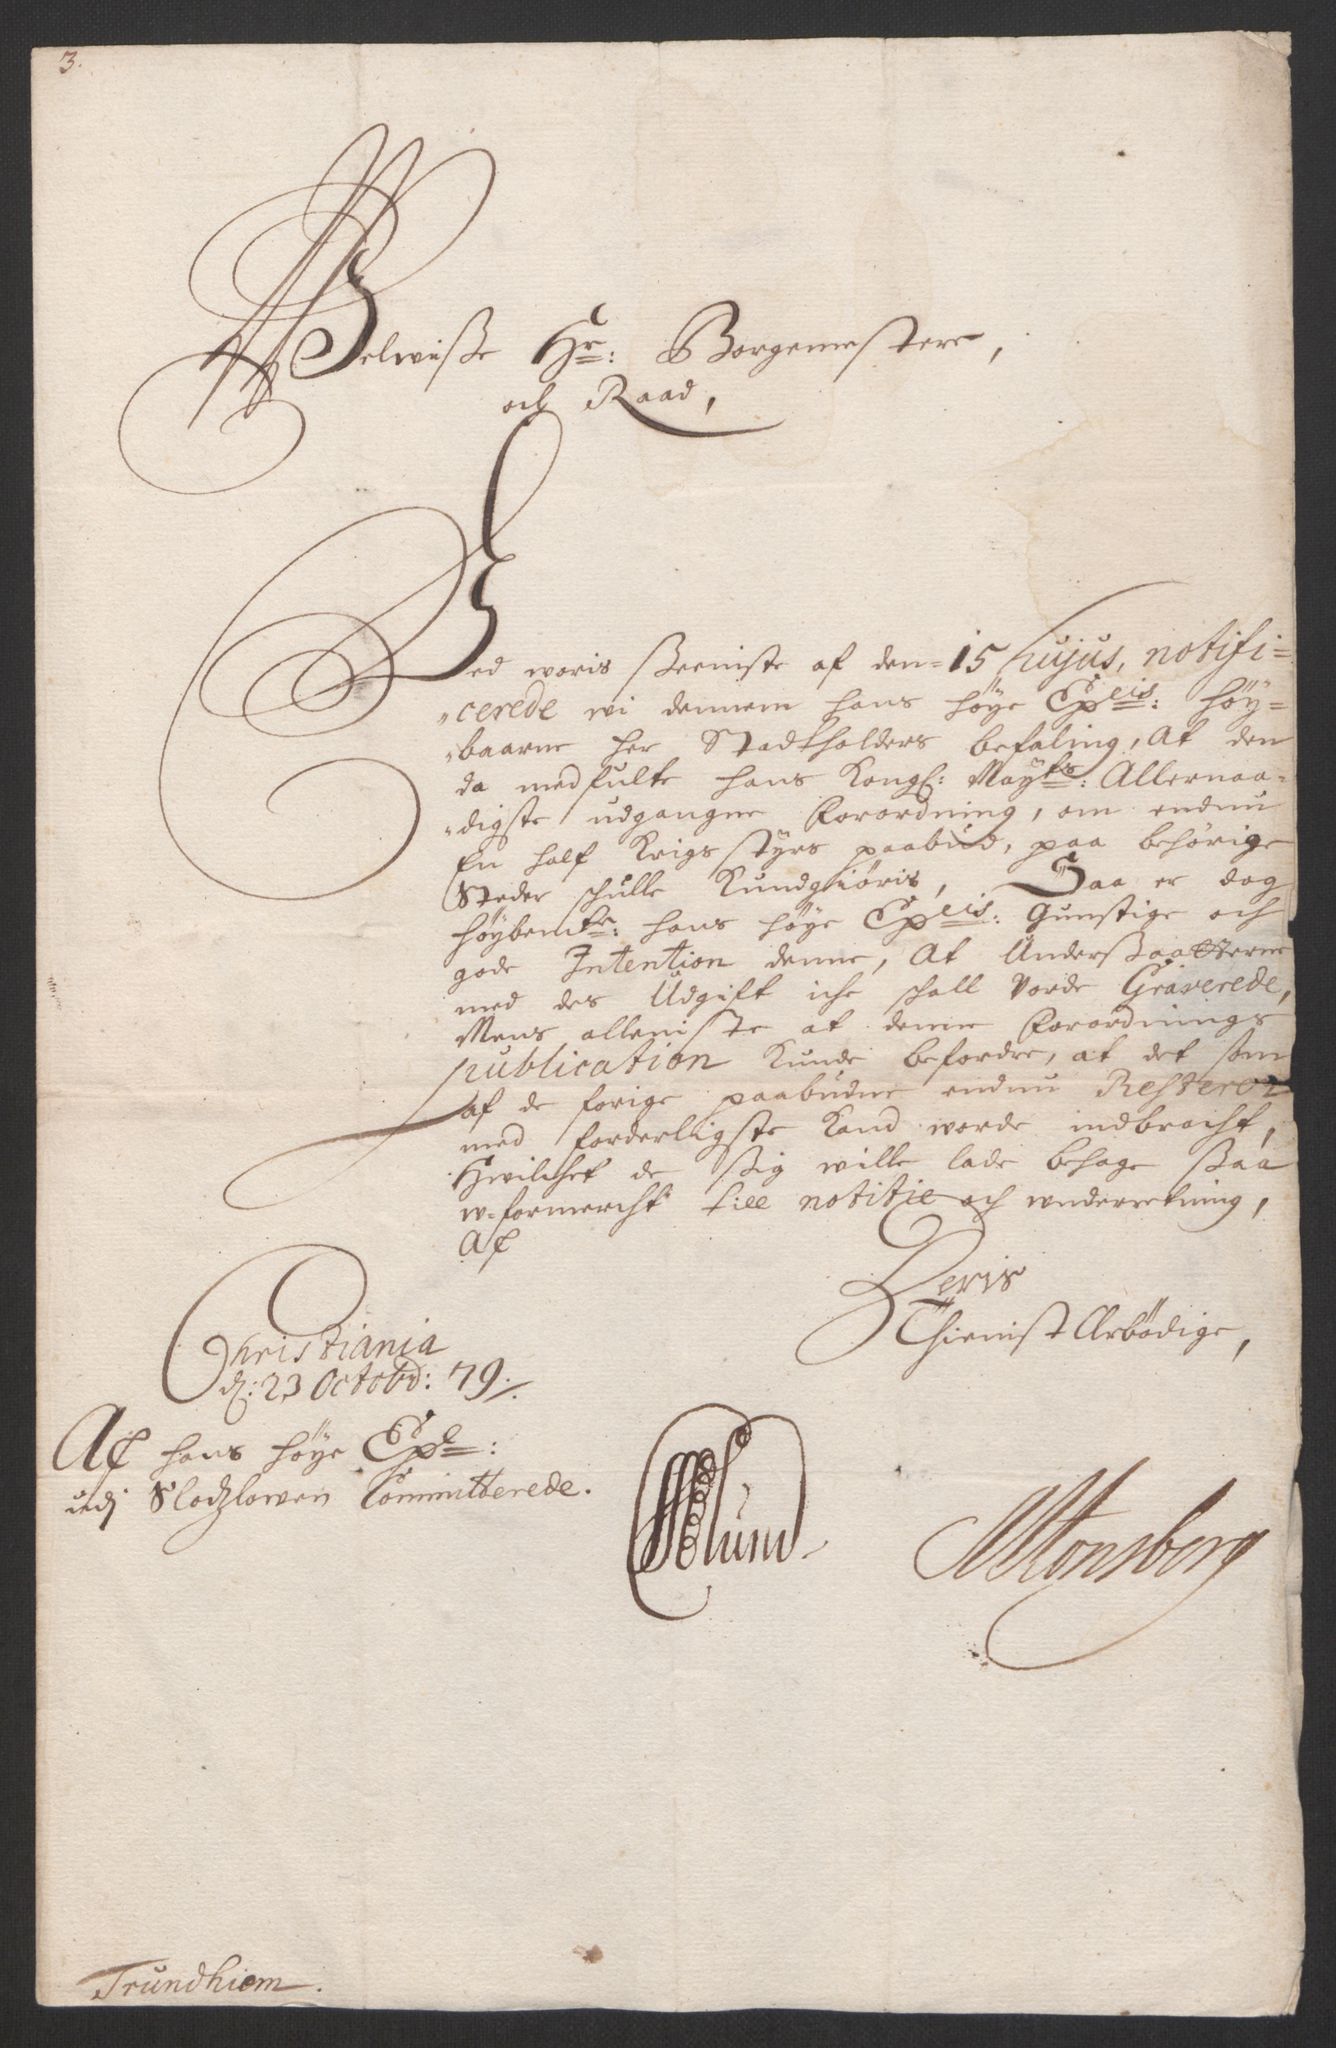 3.
Welwiße Hr: Borgemestere,
och Raad,
Wed woris Skeeniste af den 15 hujus, notifi=
cerede wi dennem hans høye Excelis: høy=
baarne her Stadtholders befaling, At den
da medfulte hans Kongl: Mayts: Allernaa=
digste udgangne Forordning, om endnu
En half Krigs styrs paabud, paa behørige
Steder schulle Kundgiøris, Saa er dog
høybemte: hans høye Excelis: Gunstige och
gode Intention denne, At Underßaatterne
med des Udgift iche schall Vorde Graverede,
Mens alleniste at denne Forordnings
publication Kunde befordre, at det som
af de forige paabudne endnu Resterer
med forderligste Kand worde indbracht,
Hwilchet de ßig wille lade behage ßaa
w=formercht till notitie och underretning,
Af
Deris
Thienist Arbödige,
Christiania
d: 23 Octobd: 79.
Af hans høye Excle:
udj Slodzlowen Committerede.
lund
Tonsberg
Trundhiem.